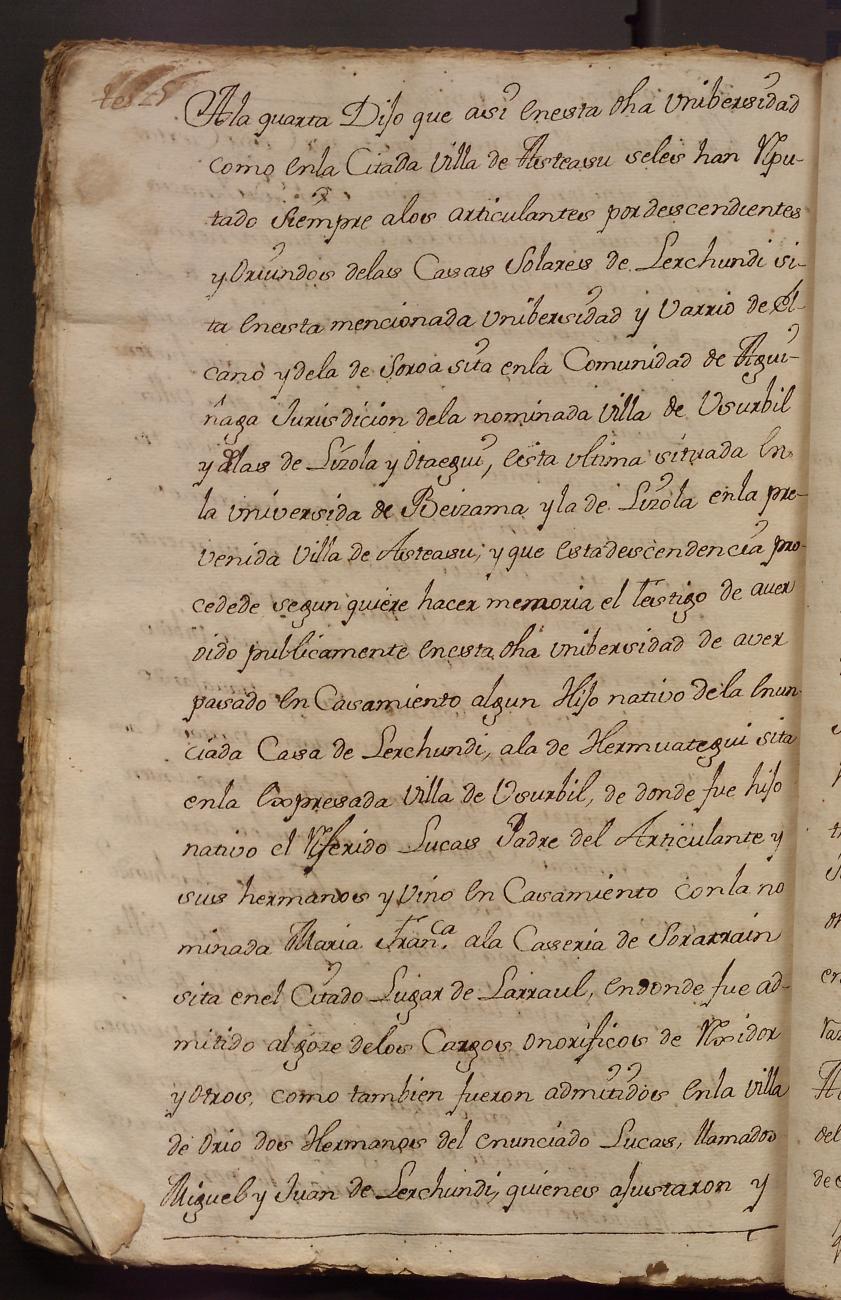 A la quarta Dijo que asi en esta dha Unibersidad
como en la Citada Villa de Asteasu seles han Repu-
tado siempre alos articulantes por descendientes
y Oriundos delas Casas Solares de Lerchundi si-
ta en esta mencionada Unibersidad y Varrio de El-
cano y dela de Soroa sita enla Comunidad de Agui-
ñaga Jurisdicion dela nominada Villa de Usurbil
y alas de Lizola y Otaegui, esta ultima situada En
la Universida de Beizama y la de Lizola enla pre-
venida Villa de Asteasu; y que esta descendencia pro-
cedede segun quiere hacer memoria el testigo de aver
oido publicamente en esta dha Unibersidad de aver
pasado en Casamiento algun Hijo nativo de la Enun-
ciada Casa de Lerchundi, ala de Hermuategui sita
enla Expresada Villa de Usurbil, de donde fue hijo
nativo el Referido Lucas Padre del Articulante y
sus hermanos y Vino En Casamiento con la no
minada Maria Fran.ca ala Caseria de Sorarrain
sita enel Citado Lugar de Larraul, en donde fue ad-
mitido algoze delos Cargos Onorificos de Rexidor
y Otros, como tambien fueron admitidos en la Villa
de Orio dos Hermanos del enunciado Lucas, llamados
Miguel y Juan de Lerchundi, quienes ajustaron y